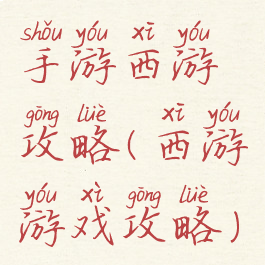 shǒu yóu xī yóu
手游西游
gōng lüè xī yóu
攻略(西游
yóu xì gōng lüè
游戏攻略)